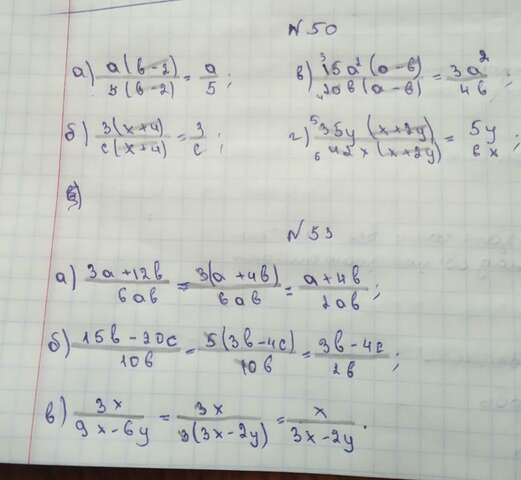 №50
а) a(b-2)/5(b-2) = a/5;
в) ³15a²(a-b)/₄20b(a-b) = 3a²/4b;
б) 3(x+4)/c(x+4) = 3/c;
г) ⁵35y(x+2y)/₆42x(x+2y) = 5y/6x;
№53
а) 3a+12b/6ab = 3(a+4b)/6ab = a+4b/2ab;
б) 15b-20c/10b = 5(3b-4c)/10b = 3b-4c/2b;
в) 3x/9x-6y = 3x/3(3x-2y) = x/3x-2y.